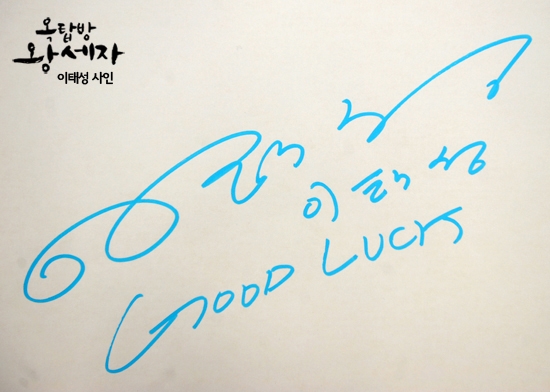 옥탑방
왕세자
이태성 사인
이태성
GOOD LUCK